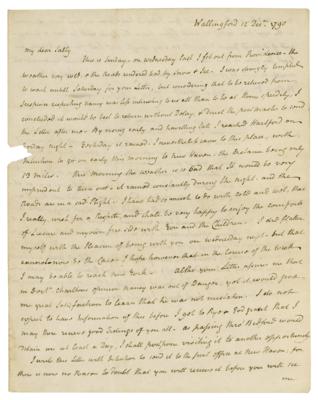 Wallingford 12 Dec.r 1790
my dear Sally
This is Sunday. on Wednesday last I set out from Providence - the
weather very wet, & the Roads rendered bad by Snow & Ice. I was strongly tempted
to wait until Saturday for your Letter, but considering that to be relieved from
Suspense respecting nancy was less interesting to us all than to be at Home speedily, I
concluded it would be best to return without Delay, & direct the post master to send
the Letter after me. By rising early and travelling late I reached Hartford on
friday night - Yesterday it rained. I nevertheless came to this place, with
Intention to go on early this morning to new Haven, the Distance being only
13 miles. This morning the weather is so bad that it would be very
imprudent to turn out. it rained constantly during the night, and the
Roads are in a sad Plight. I have had so much to do with cold and wet, that
I really wish for a Respite, and shall be very happy to enjoy the comforts
of Leisure and my own fire side with you and the Children. I did flatter
myself with the Pleasure of being with you on wednesday night, but that
cannot now be the Case. I hope however that in the Course of the week
I may be able to reach new York. After your Letter assured me that
in Doct.r Charltons opinion nancy was out of Danger, yet it would give
me great Satisfaction to learn that he was not mistaken. I do not
expect to have Information of this before I get to Rye & God grant that I
may then receive good Tidings of you all. as passing thro' Bedford would
detain me at least a Day, I shall postpone visiting it to another opportunity
I write this Letter with Intention to send it to the post office at New Haven; for
there is now no Reason to Doubt that you will receive it before you will see
me